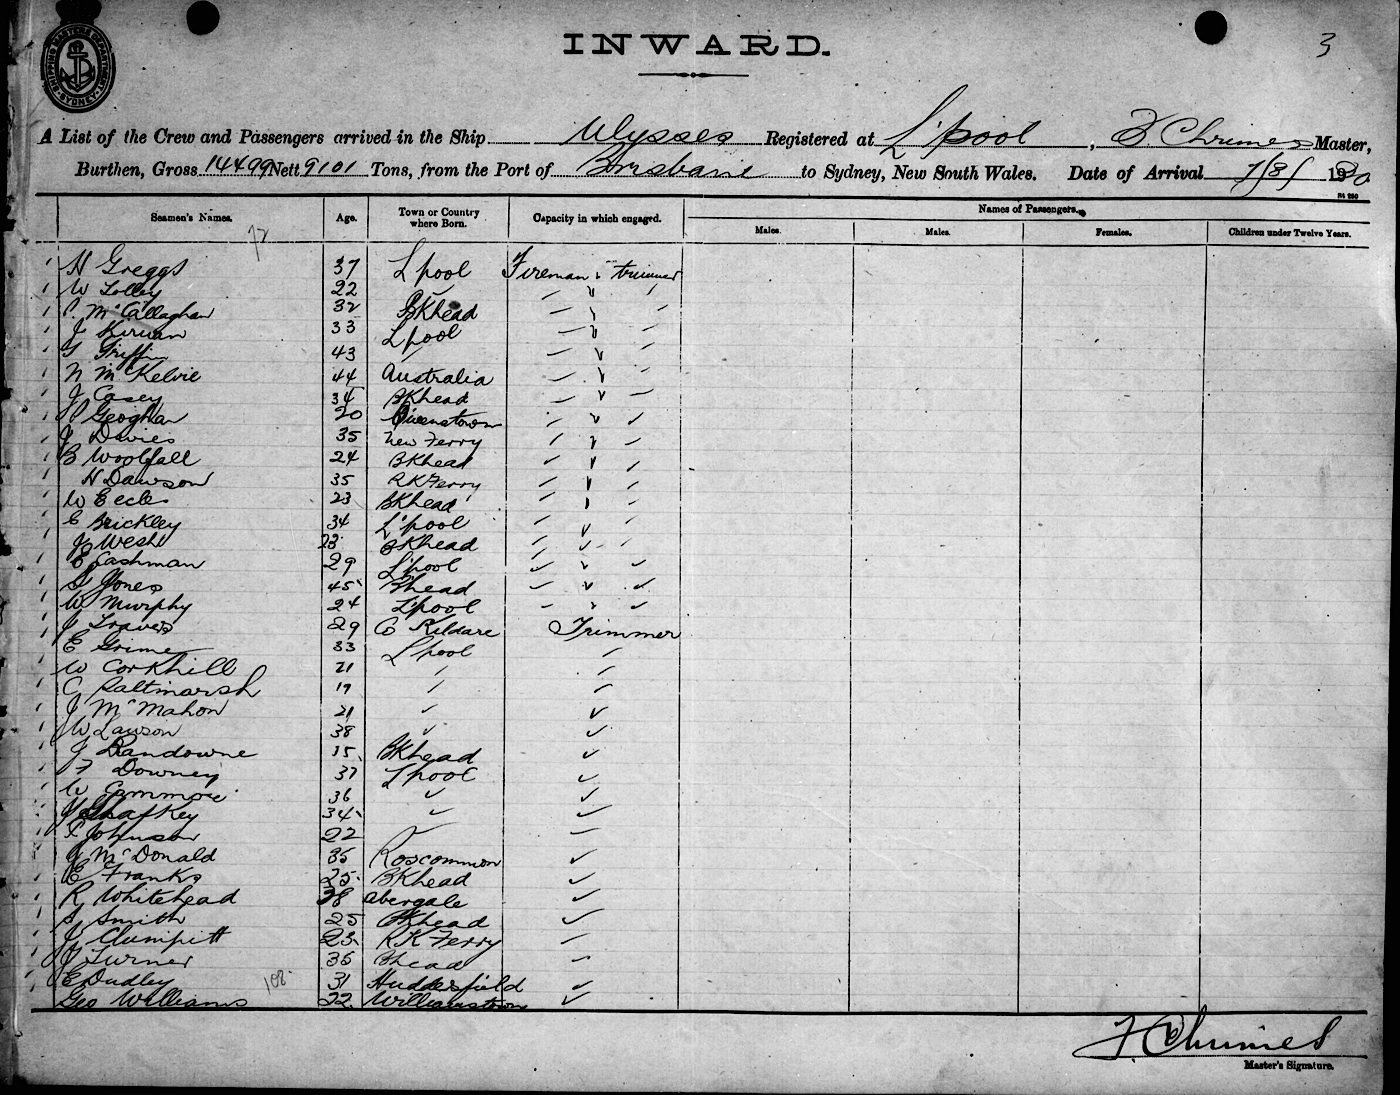 SHIPPING MASTERS DEPARTMENT SYDNEY
INWARD.
3
A List of the Crew and Passengers arrived in the Ship Ulysses Registered at L'pool, F. Chrimes Master,
Burthen, Gross 14499 Nett 9101 Tons, from the Port of Brisbane to Sydney, New South Wales. Date of Arrival 1/8/ 1920
Seamen's Names. Age. Town or Country where Born. Capacity in which engaged. Names of Passengers.
Males. Males. Females. Children under Twelve Years.
72
H Greggs 37 L'pool Fireman & trimmer
W Lolley 22 "
P. McCallaghan 32 BKhead
J Kirwan 33 L'pool
G Griffin 43 "
N McKelvie 44 Australia
J Casey 34 BKhead
P Geoghan 20 Queenstown
J Davies 35 New Ferry
B Woolfall 24 BKhead
H Dawson 35 RK Ferry
W Eccles 23 BKhead
E Brickley 34 L'pool
J West 23 BKhead
E Cashman 29 L'pool
G Jones 45 B'head
W Murphy 24 L'pool
J Travers 29 Co Kildare Trimmer
E Grime 33 L'pool
W Corkhill 21 "
C Saltmarsh 19 "
J McMahon 21 "
W Lawson 38 "
J Randowne BKhead
F Downey 37 L'pool
W 36 "
J 34 "
Johnson 22 "
J McDonald 35 Roscommon
E Franks 25 BKhead
R Whitehead 38 abergale
S Smith 25 BKhead
J Clumpitt 23 RK Ferry
J Turner 36 B'head
E Dudley 108 31 Huddersfield
Geo Williams 22 Williamstown
F. Chrimes
Master's Signature.